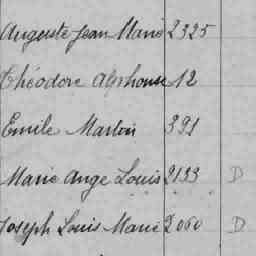 Auguste Jean Marie 2325
Théodore Alphonse 12
Emile Martin 391
Marie Ange Louis 2133 D
Joseph Louis Marie 2060 D